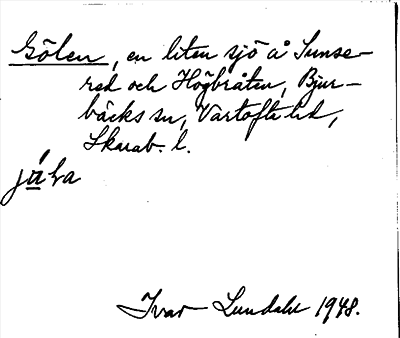 Gölen, en liten sjö å Sunse-
red och Högbråten, Bjur-
bäcks sn, Vartofta hd,
Skarab. l.
Ivar Lundahl 1948.